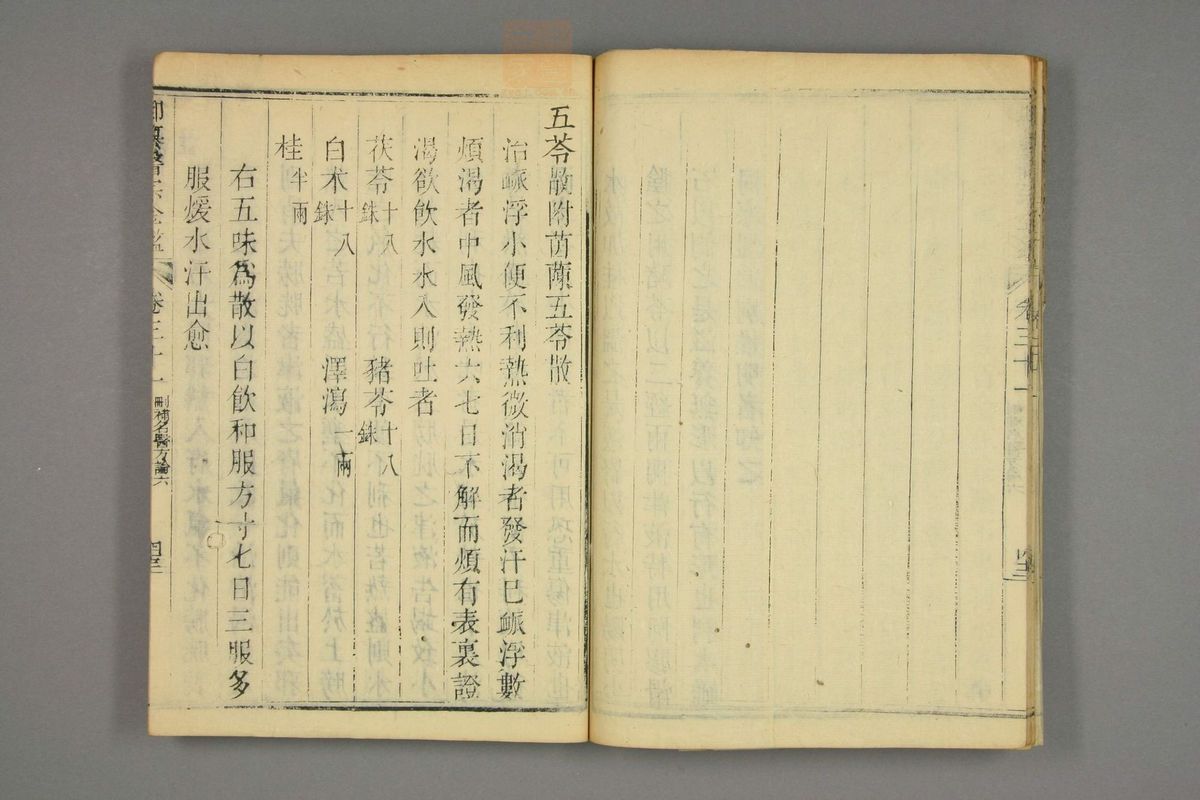 五苓散附茵蔯五苓散
治脈浮小便不利熱微消渴者發汗已脈浮數
煩渴者中風發熱六七日不解而煩有表裏證
渴欲飲水水入則吐者
茯苓十八銖 豬苓十八銖
白朮十八銖 澤瀉一兩
桂半兩
右五味爲散以白飲和服方寸七日三服多
服煖水汗出愈
御纂醫宗金鑑 卷三十一 刪補名醫方論六
卷三十一